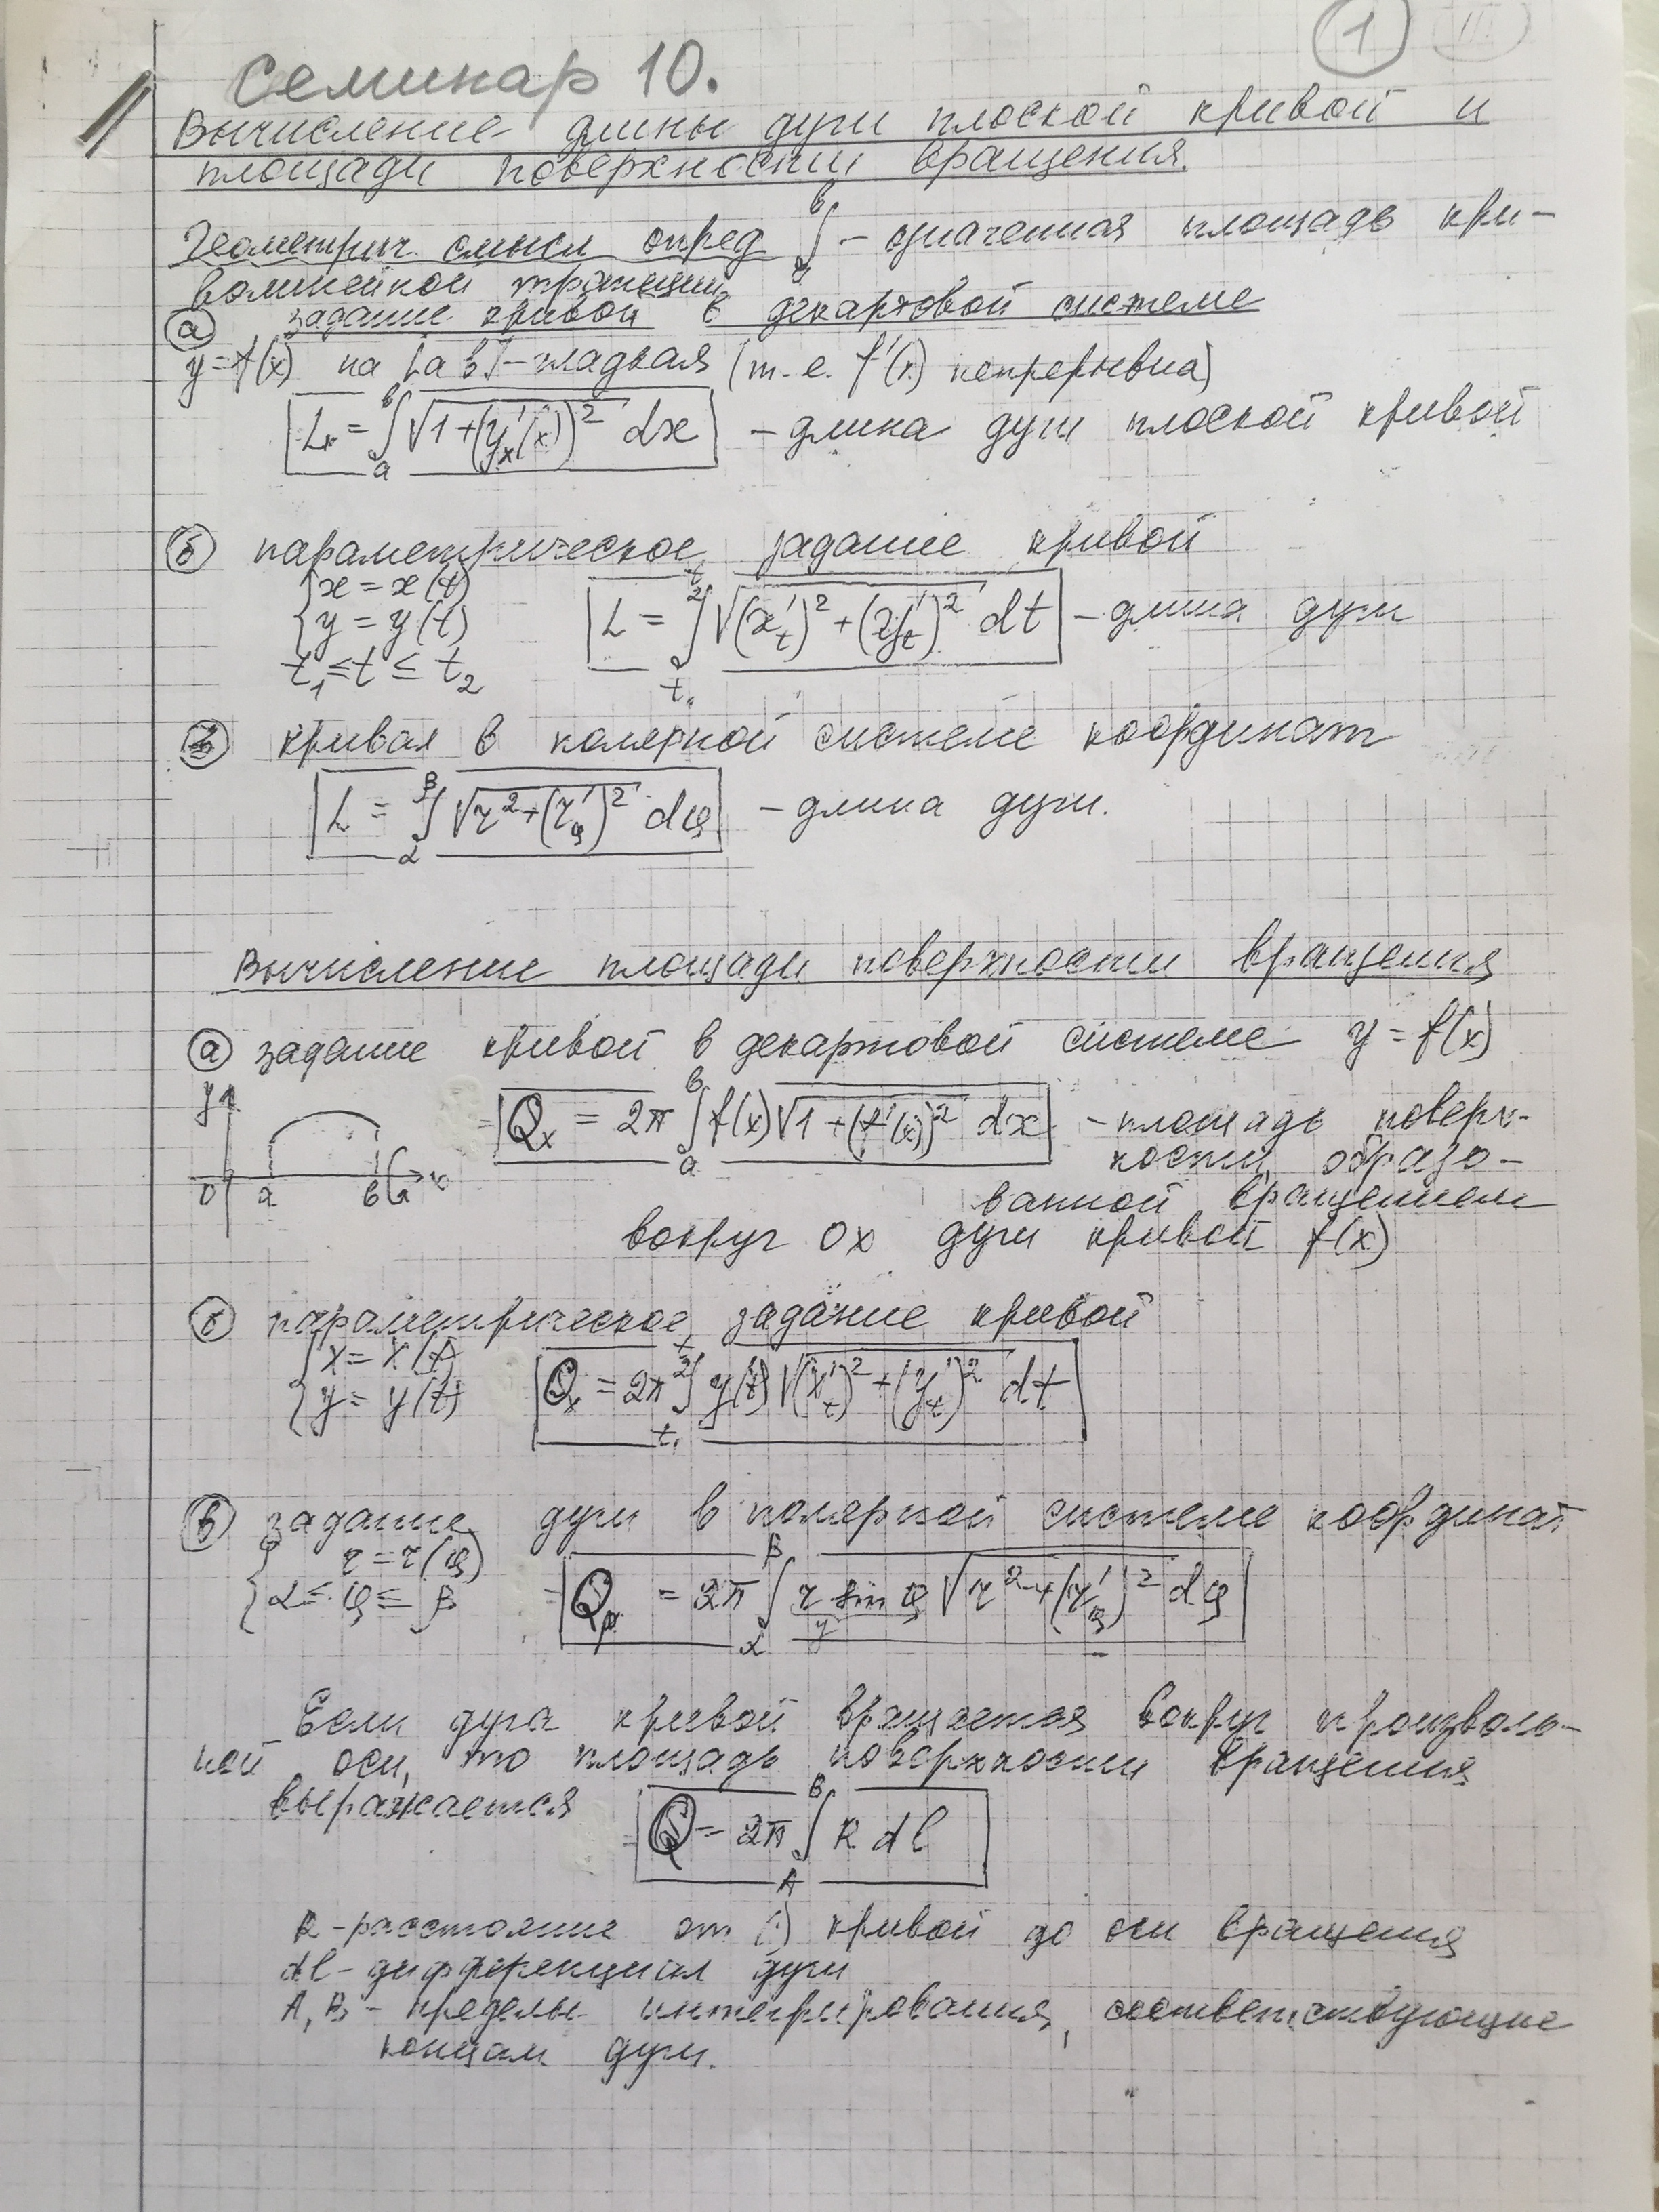 1
Семинар 10.
Вычисление длины дуги плоской кривой и
площади поверхности вращения.
Геометрич. смысл опред ∫ₐᵇ – означенная площадь кри-
волинейной трапеции
а) задание кривой в декартовой системе
y = f(x) на [a b] – гладкая (т. е. f'(x) непрерывна)
L = ∫ₐᵇ √(1+(y'ₓ(x))²) dx – длина дуги плоской кривой
б) параметрическое задание кривой
{ x = x(t)
{ y = y(t)
t₁ ≤ t ≤ t₂
L = ∫_{t₁}^{t₂} √((x'_t)² + (y'_t)²) dt – длина дуги
в) кривая в полярной системе координат
L = ∫_α^β √(r² + (r'_φ)²) dφ – длина дуги.
Вычисление площади поверхности вращения
а) задание кривой в декартовой системе y = f(x)
y
0 a b x
Qₓ = 2π ∫ₐᵇ f(x) √(1+(f'(x))²) dx – площадь поверх-
ности, образо-
ванной вращением
вокруг Ox дуги кривой f(x)
б) параметрическое задание кривой
{ x = x(t)
{ y = y(t)
Qₓ = 2π ∫_{t₁}^{t₂} y(t) √((x'_t)² + (y'_t)²) dt
в) задание дуги в полярной системе координат
{ r = r(φ)
{ α ≤ φ ≤ β
Q_p = 2π ∫_α^β r sin φ √(r² + (r'_φ)²) dφ
y
Если дуга кривой вращается вокруг произволь-
ной оси, то площадь поверхности вращения
выражается
Q = 2π ∫_A^B R dl
R – расстояние от (·) кривой до оси вращения
dl – дифференциал дуги
A, B – пределы интегрирования, соответствующие
концам дуги.